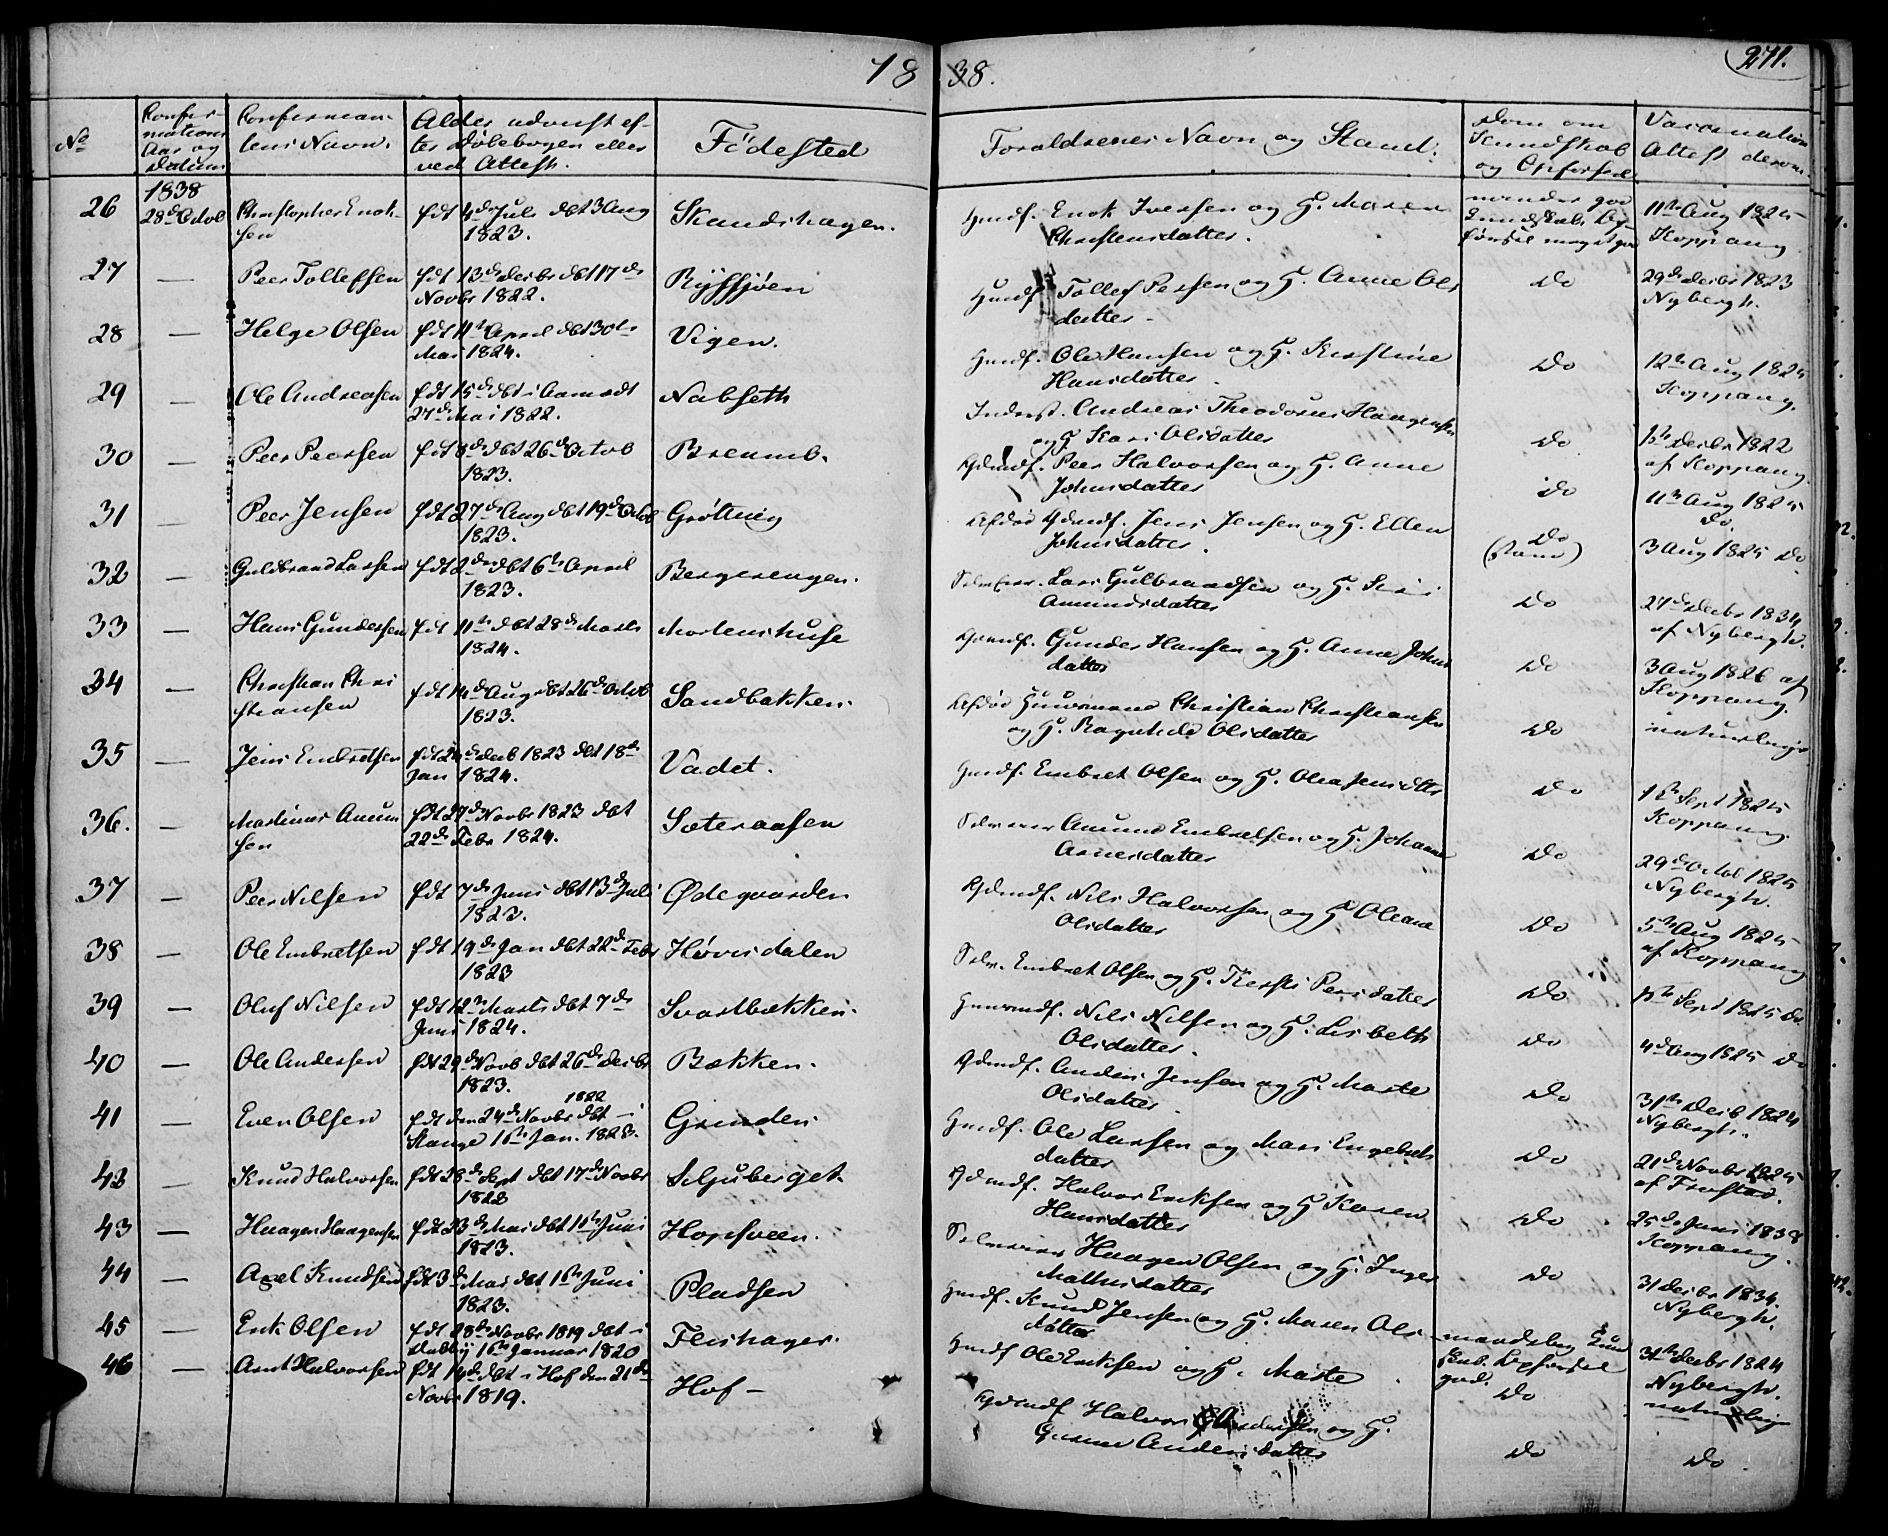 18 38.
271.
No
Konfir-
mations
Aar og
Datum
Konfirman-
tens Navn.
Alder udviist ef-
ter Døbebogen eller
ved Attest.
Födested
Foraldrenes Navn og Stand.
Dom om
Kundskab
og Opførsel
Vaccination
Attest derom.
26
1838
28de Octob
Christopher Enok-
sen
fdt 4de Juli døbt 3 Aug
1823.
Skandshagen.
Hmdf. Enok Iversen og H. Maren
Christensdatter.
11te Aug 1825
Koppang
27
—
Peer Tollefsen
fdt 13de Decbr døbt 17de
Novbr 1822.
Rÿssjøen
Hmdf. Tollef Persen og H. Anne Ols
datter
Do
29de Decbr 1823
Nybergh.
28
—
Helge Olsen
fdt 11te April døbt 30te
Mai 1824.
Vigen.
Hmdf. Ole Hansen og H. Kirstine
Hansdatter
Do
12te Aug 1825
Koppang.
29
—
Ole Andreasen
fdt 15de døbt i Aamodt
27de Mai 1822.
Nabseth
Inderst. Andreas Theodorus Haagensen
og H. Kari Olsdatter
Do
Decbr 1822
af Koppang
30
—
Peer Peersen
fdt 8de døbt 26de Octob
1823.
Brenmb.
Gdmdf. Peer Halvorsen og H. Anne
Johnsdatter
Do
11te Aug 1825
Do.
31
—
Peer Jensen
fdt 27de Aug døbt 19de Octob
1823.
Grötting
Afdød Gdmdf. Jens Jensen og H. Ellen
Johnsdatter.
Do
3 Aug 1825 Do
32
—
Guldbrand Larsen
fdt 2den døbt 6te April
1823.
Bergerengen.
Lars Gulbrandsen og H. Kari
Amundsdatter
Do
27de Decbr 1834
af Nybergh.
33
—
Hans Gundersen
fdt 11te døbt 28de Marts
1824.
Mortenshuse
Gdmdf. Gunder Hansen og H. Anne Johns
datter
Do
3 Aug 1826 af
Koppang.
34
—
Christian Chri
stiansen
fdt 14de Aug døbt 26de Octob
1823.
Sandbakken.
Afdød Huusmand Christian Christiansen
og H. Ragnhilde Olsdatter
Do
naturlige
35
—
Jens Embretsen
fdt 24de Decb 1823 døbt 18de
Jan 1824.
Vadet.
Hmdf. Embret Olsen og H. Olea Jensdtr
Do
Sept 1825
Koppang.
36.
—
Martinus Amun
sen
fdt 27de Novbr 1823 døbt
22de Febr 1824.
Sæteraasen
Selveier Amund Embretsen og H. Johanne
Arnesdatter
Do
29de Octob 1825
Nybergh.
37
—
Peer Nilsen
fdt 7de Juni døbt 13de Juli
1823.
Ødegaarden
Gdmdf. Nils Halvorsen og H. Oleane
Olsdatter
Do
5te Aug 1825
af Koppang
38
—
Ole Embretsen
fdt 19de Jan døbt 22de Febr
1823
Høvisdalen
Selv. Embret Olsen og H. Kjersti Persdatter
Do
Sept 1825 Do
39
—
Oluf Nilsen
fdt 12te Marts døbt 7de
Juni 1824.
Svartbækken.
Huusmdf. Nils Nilsen og H. Lisbeth
Olsdatter.
Do
4de Aug 1825 Do
40
—
Ole Andersen
fdt 29de Novb døbt 26de Decbr
1823.
Bækken.
Gdmdf. Anders Jensen og H. Marte
Olsdatter
Do
31te Decb 1824
Nybergh.
41
—
Even Olsen
fdt den 24de Novbr 1822 døbt i
Stange 1te Jan. 1823.
Grinden
Hmdf. Ole Larsen og Mari Engebrets
datter
Do
21de Novbr 1825
af Frostad.
42
—
Knud Halvorsen
fdt 28de Sept døbt 17de Novbr
1823
Seljuberget
Gdmdf. Halvor Eriksen og H. Karen
Hansdatter
Do
25de Juni 1838
Koppang.
43
—
Haagen Haagensen
fdt 23de Mai døbt 11te Juni
1823.
Hopsveen.
Selveier Haagen Olsen og H. Inger
Mathisdatter
Do
31 Decbr 1834.
Nybergh.
44
—
Axel Knudsen
fdt 3de Mai døbt 1te Juni
1823.
Pladsen
Hmdf. Knud Jensen og H. Maren Ols
datter
31te Decbr 1824
Nybergh.
45
—
Erik Olsen
fdt 28de Novbr 1819 døbt i
16te Januar 1820
Fleishager.
Hmdf Ole Eriksen og H. Marte
Do
naturlige
46
—
Arnt Halvorsen
fdt 14de døbt i Hof den 21de
Novbr 1819.
Hof
Gdmdf Halvor Andersen og H.
Gurine Andersdatter
Do
Do